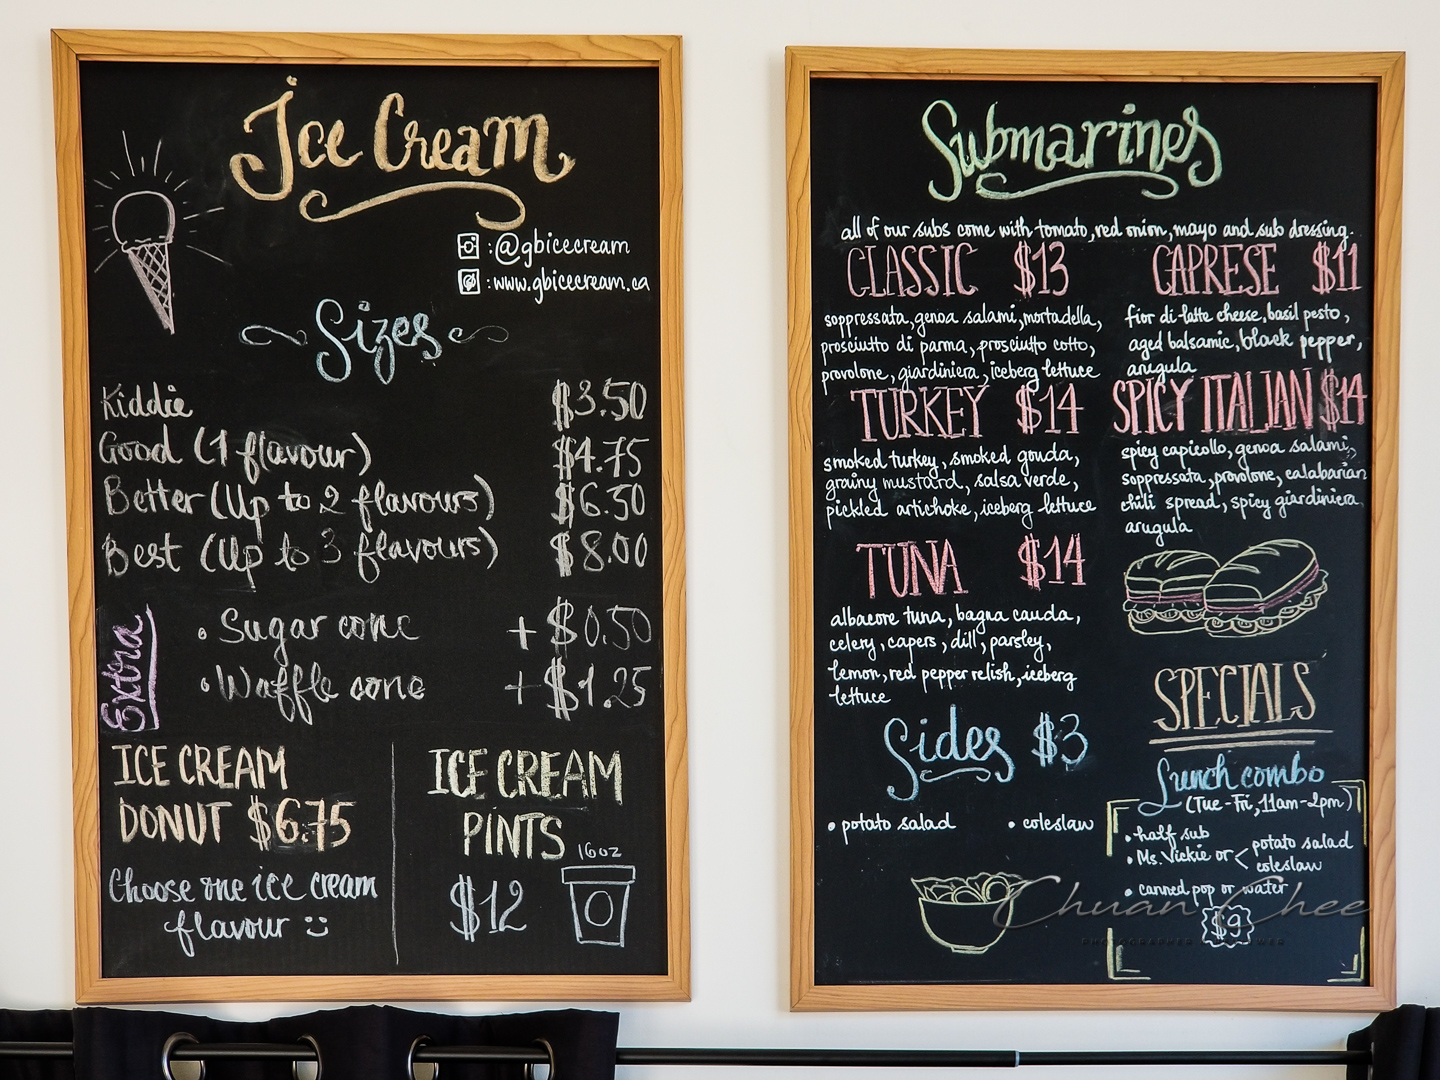 Ice Cream
: @gbicecream
: www.gbicecream.ca
Sizes
Kiddie $3.50
Good (1 flavour) $4.75
Better (Up to 2 flavours) $6.50
Best (Up to 3 flavours) $8.00
Extra
• Sugar cone + $0.50
• Waffle cone + $1.25
ICE CREAM
DONUT $6.75
Choose one ice cream
flavour
ICE CREAM
PINTS
16oz
$12
Submarines
all of our subs come with tomato, red onion, mayo and sub dressing.
CLASSIC $13
soppressata, genoa salami, mortadella,
prosciutto di parma, prosciutto cotto,
provolone, giardiniera, iceberg lettuce
TURKEY $14
smoked turkey, smoked gouda,
grainy mustard, salsa verde,
pickled artichoke, iceberg lettuce
TUNA $14
albacore tuna, bagna cauda,
celery, capers, dill, parsley,
lemon, red pepper relish, iceberg
lettuce
Sides $3
• potato salad • coleslaw
CAPRESE $11
fior di latte cheese, basil pesto,
aged balsamic, black pepper,
arugula
SPICY ITALIAN $14
spicy capicollo, genoa salami,
soppressata, provolone, calabarian
chili spread, spicy giardiniera,
arugula
SPECIALS
Lunch combo
(Tue-Fri, 11am-2pm)
• half sub
• Ms. Vickie or < potato salad
coleslaw
• canned pop or water
$9
Chuan Chee